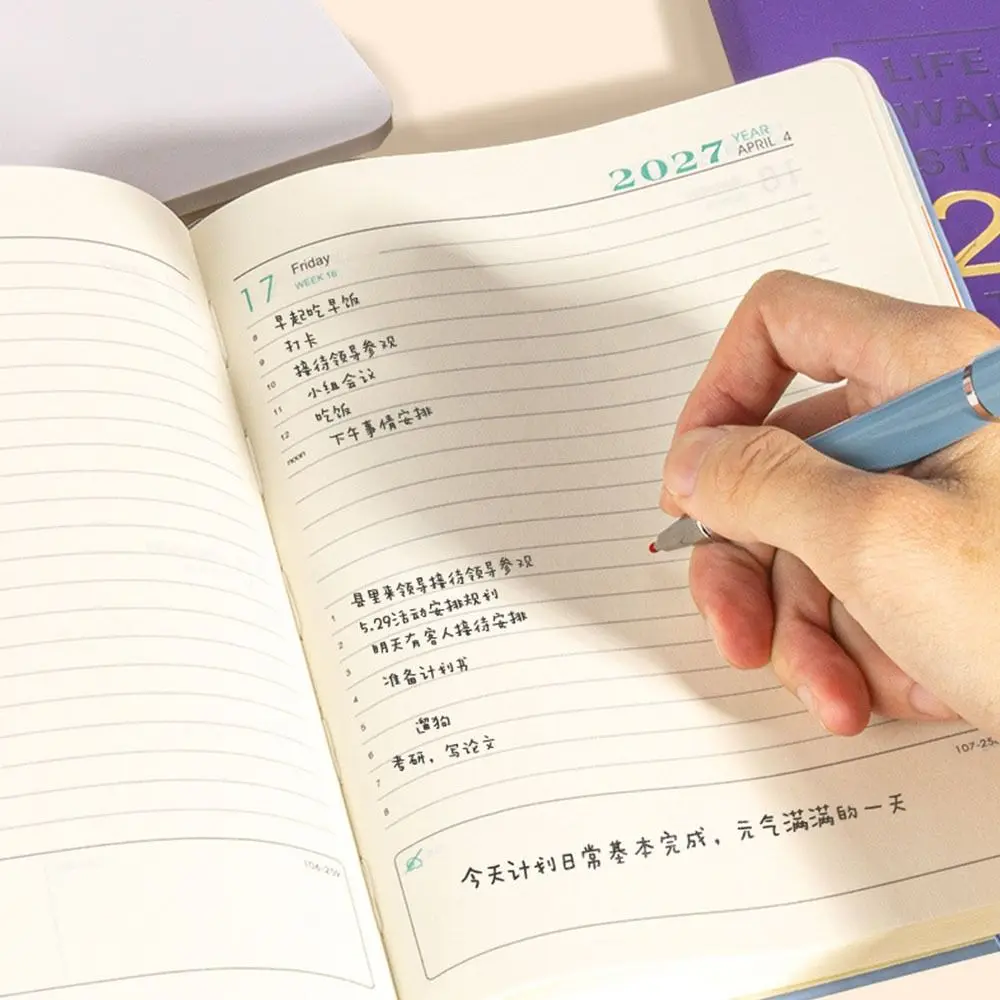 2027 YEAR APRIL 4
17 Friday
WEEK 16
8 早起吃早饭
9 打卡
10 接待领导参观
11 小组会议
12 吃饭
noon 下午事情安排
县里来领导接待领导参观
1 5.29活动安排规划
2 明天有客人接待安排
3 准备计划书
4
5 遛狗
6 考研，写论文
7
8
107-258
今天计划日常基本完成，元气满满的一天
106-259
LIFE
WAL
STO
2